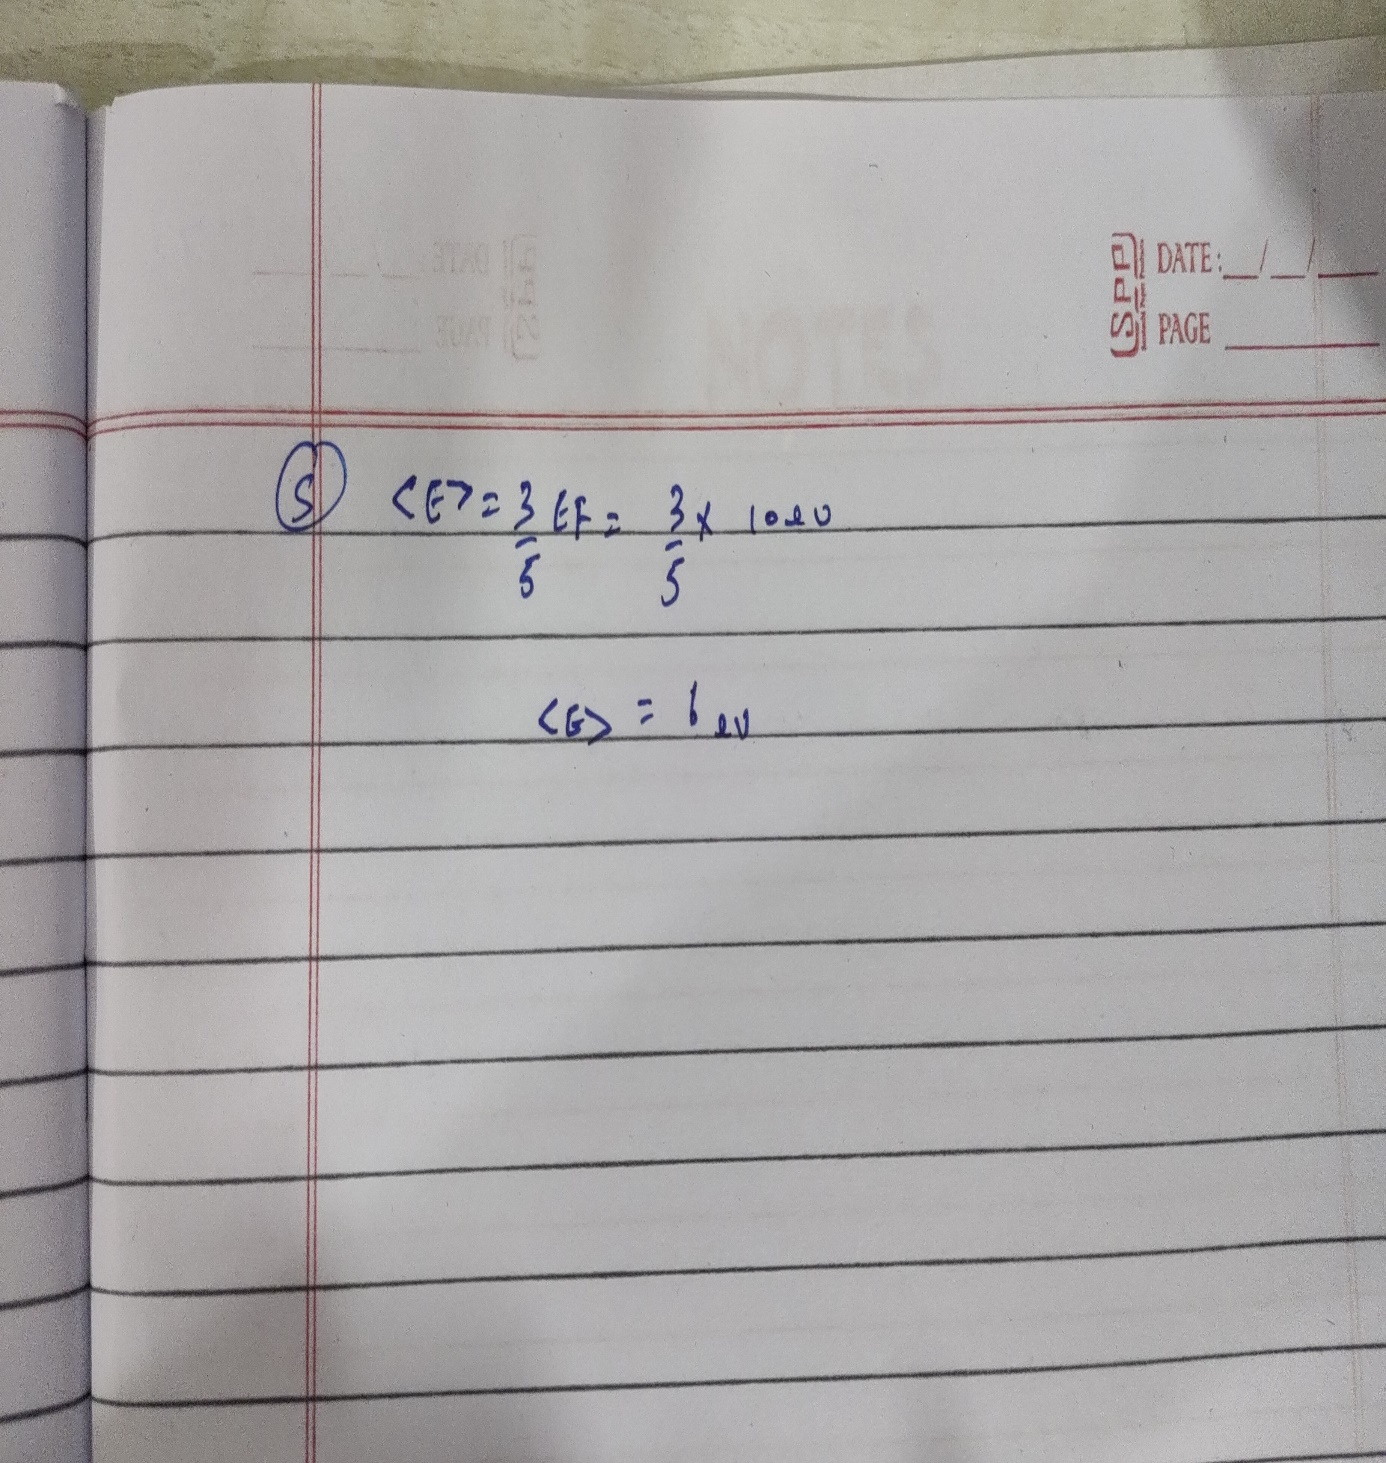 SPP DATE: __/__/___
PAGE ______
(5) <E> = 3/5 EF = 3/5 × 10 ev
<E> = 6 ev